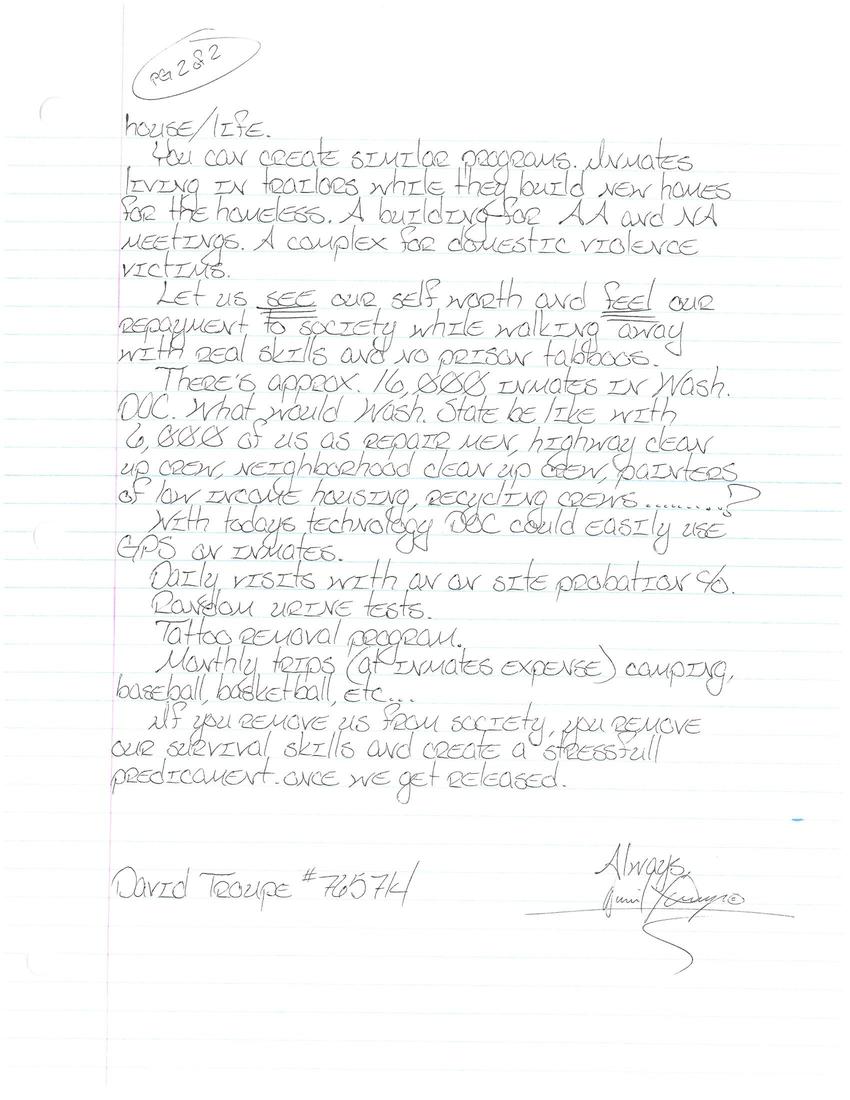 pg 2 of 2
house/life.
You can create similar programs. Inmates
living in trailors while they build new homes
for the homeless. A building for AA and NA
meetings. A complex for domestic violence
victims.
Let us see our self worth and feel our
repayment to society while walking away
with real skills and no prison tabboos.
There's approx. 16,000 inmates in Wash.
DOC. What would Wash. State be like with
6,000 of us as repair men, highway clean
up crew, neighborhood clean up crew, painters
of low income housing, recycling crews.........?
With todays technology DOC could easily use
GPS on inmates.
Daily visits with an on site probation c/o.
Random urine tests.
Tattoo removal program.
Monthly trips (at inmates expense) camping,
baseball, basketball, etc...
If you remove us from society, you remove
our survival skills and create a stressfull
predicament. once we get released.
Always,
David Troupe #765714